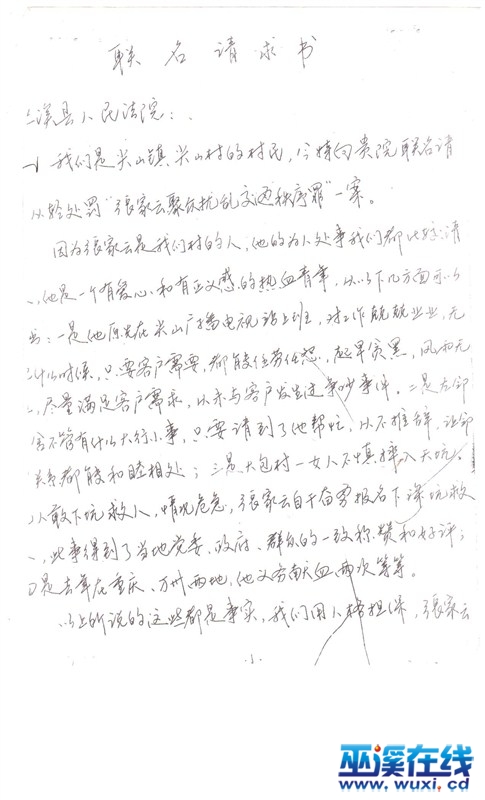 联名请求书
溪县人民法院：
我们是尖山镇尖山村的村民，今特向贵院联名请
从轻处罚"张家云聚众扰乱交通秩序罪"一案。
因为张家云是我们村的人，他的为人处事我们都比较清
，他是一个有爱心和有正义感的热血青年，从以下几方面可以
出：一是他原先在尖山广播电视站上班，对工作兢兢业业，无
什么时候，只要客户需要，都能任劳任怨，起早贪黑，风雨无
，尽量满足客户需求，从未与客户发生过争吵事件。二是左邻
舍不管有什么大行小事，只要请到了他帮忙，从不推辞，让邻
关系都能和睦相处；三是大包村一女人不慎摔入天坑，
人敢下坑救人，情况危急，张家云自告奋勇报名下深坑救
，此事得到了当地党委、政府、群众的一致称赞和好评；
四是去年在重庆、万州两地，他义务献血两次等等。
以上所说的这些都是事实，我们用人格担保，张家云
巫溪在线
www.wuxi.cd